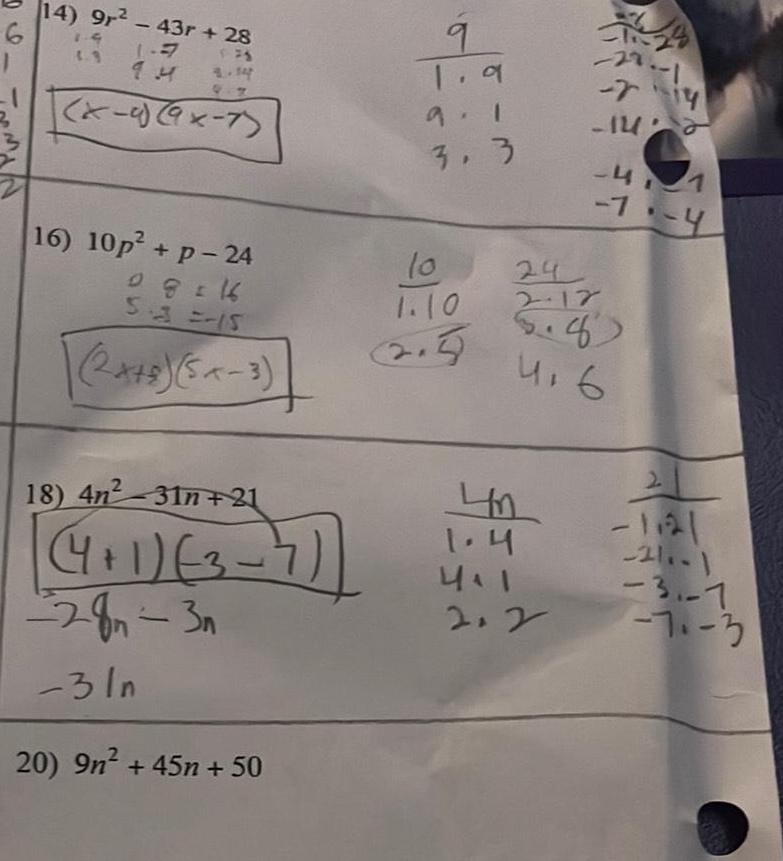 6
1
-1
3
3
2
2
14) 9r² − 43r + 28
1.9 1.7
9.4
(x-4)(9x-7)
9
1.9
9.1
3.3
-1.-28
-28.-1
-2.-14
-14.-2
-4.-7
-7.-4
16) 10p² + p − 24
8 = 16
5.-3 = -15
(2x+8)(5x-3)
10
1.10
2.5
24
2.12
3.8
4.6
18) 4n² − 31n + 21
(4+1)(-3-7)
-28n - 3n
-31n
4n
1.4
4.1
2.2
21
-1.21
-21.-1
-3.-7
-7.-3
20) 9n² + 45n + 50